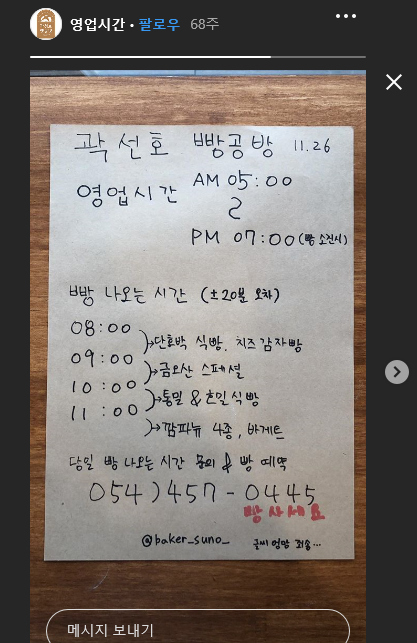 영업시간 • 팔로우 68주
곽선호 빵공방 11.26
영업시간 AM 05:00
~
PM 07:00 (빵 소진시)
빵 나오는 시간 (±20분 오차)
08:00
→단호박 식빵. 치즈 감자빵
09:00
→금오산 스페셜
10:00
→통밀 & 흰밀식빵
11:00
→깜파뉴 4종, 바게트
당일 빵 나오는 시간 문의 & 빵 예약
054) 457-0445
빵사세요
@baker_suno_
글씨 엉망 죄송...
메시지 보내기